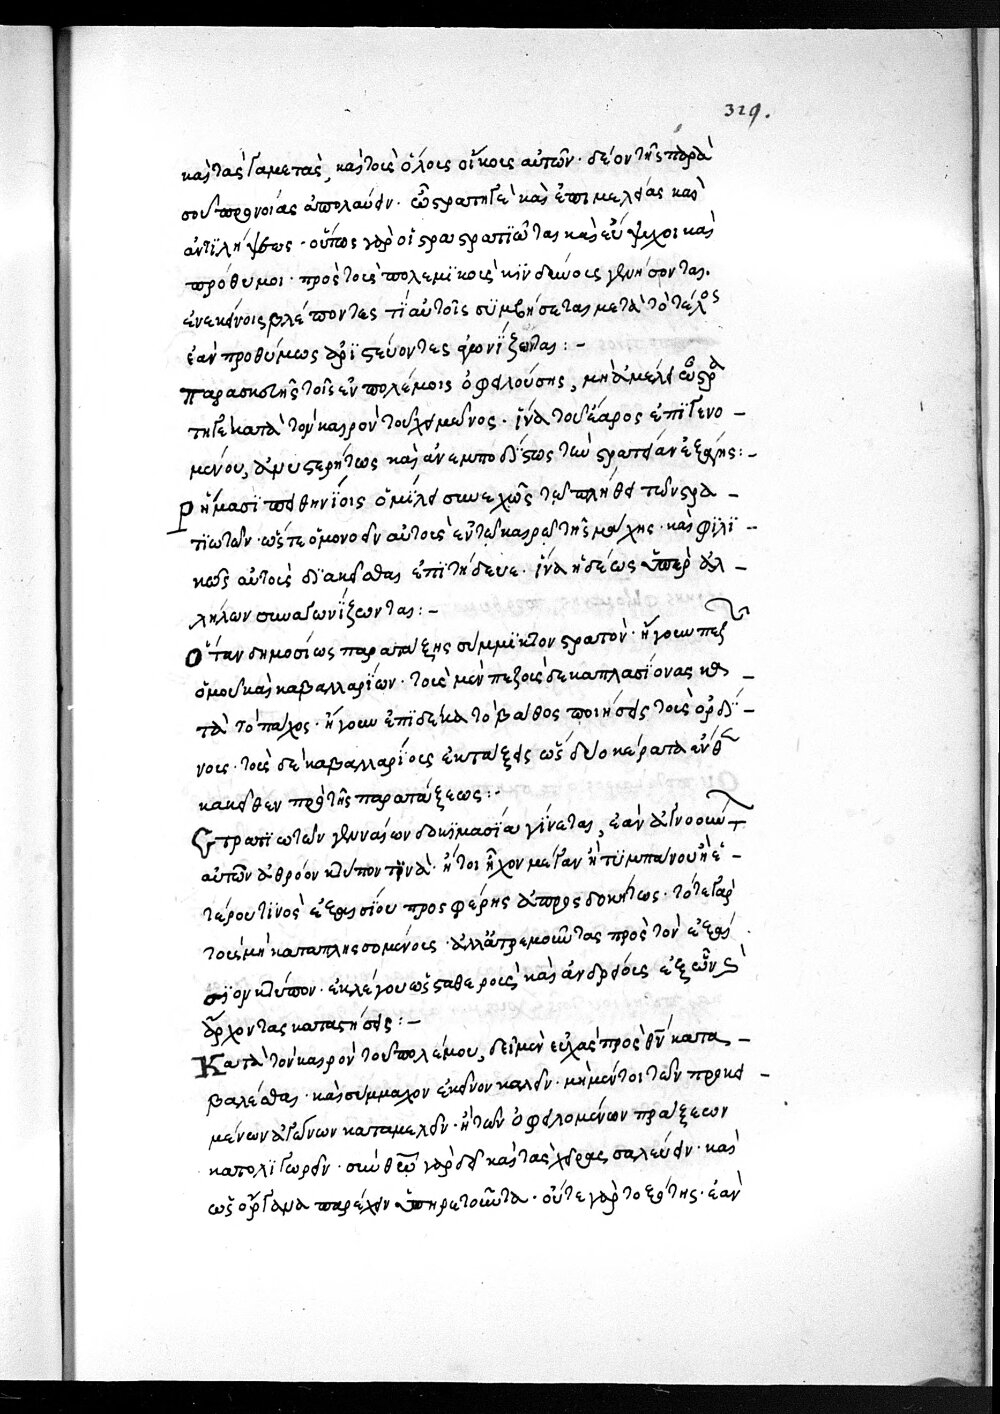 329.
καὶ τὰς γαμετὰς, καὶ τοὺς ὅλους οἴκους αὐτῶν· δέον τῆς παρὰ
σοῦ προνοίας ἀπολαύειν· ὦ στρατηγὲ καὶ ἐπιμελείας καὶ
ἀντιλήψεως· οὕτως γὰρ οἱ στρατιῶται καὶ εὔψυχοι καὶ
πρόθυμοι· πρὸς τοὺς πολεμικοὺς κινδύνους γενήσονται·
ἐν ἐκείνοις βλέποντες τί αὐτοῖς συμβήσεται μετὰ τὸ τέλος
ἐὰν προθύμως ἀριστεύοντες ἀγωνίζωνται:–
Παρασκευῆς τοῖς ἐν πολέμοις ὀφειλούσης, μὴ ἀμέλει ὦ στρα
τηγὲ κατὰ τὸν καιρὸν τοῦ χειμῶνος· ἵνα τοῦ ἔαρος ἐπιγενο–
μένου, ἀνυστερήτως καὶ ἀνεμποδίστως τῶν στρατειῶν ἐξέλθῃς:–
Ῥήμασι πειθηνίοις ὁμίλει συνεχῶς τῷ πλήθει τῶν στρα–
τιωτῶν· ὥστε ὁμονοεῖν αὐτοὺς ἐν τῷ καιρῷ τῆς μάχης· καὶ φιλι–
κῶς αὐτοὺς διακεῖσθαι ἐπιτήδευε· ἵνα ἡδέως ὑπὲρ ἀλ–
λήλων συναγωνίζωνται:–
Ὅταν δημοσίως παρατάξῃς σύμμικτον στρατὸν· ἤγουν πεζῶν
ὁμοῦ καὶ καβαλλαρίων· τοὺς μὲν πεζοὺς δεκαπλασίονας κα–
τὰ τὸ πάχος· ἤγουν ἐπὶ δέκα τὸ βάθος ποιήσεις τοὺς ὀρδί–
νους· τοὺς δὲ καβαλλαρίους ἐκτάξεις ὡς δύο κέρατα ἔνθεν
κἀκεῖθεν πρὸ τῆς παρατάξεως:–
Στρατιωτῶν γενναίων δοκιμασία γίνεται, ἐὰν ἀγνοούντων
αὐτῶν ἀθρόον κτύπον τινὰ· ἤτοι ἦχον μέγαν ἢ τυμπάνου ἢ ἑ–
τέρου τινὸς ἐξαισίου προσφέρῃς ἀπροσδοκήτως· τότε γὰρ
τοὺς μὴ καταπλησσομένους· ἀλλ' ἀτρεμοῦντας πρὸς τὸν ἐξαί
σιον κτύπον· ἐκλέγου ὡς σταθεροὺς καὶ ἀνδρείους ἐξ ὧν καὶ
ἄρχοντας καταστήσεις:–
Κατὰ τὸν καιρὸν τοῦ πολέμου, δεῖ μὲν εὐχὰς πρὸς θν κατα–
βαλέσθαι· καὶ σύμμαχον ἐκεῖνον καλεῖν· μὴ μέντοι τῶν προκει–
μένων ἀγώνων καταμελεῖν· ἢ τῶν ὀφειλομένων πράξεων
κατολιγωρεῖν· σὺν θεῷ γὰρ δεῖ καὶ τὰς χεῖρας σαλεύειν· καὶ
ὡς ὄργανα παρέχειν ὑπηρετοῦντα· οὔτε γὰρ τοξότης· ἐὰν